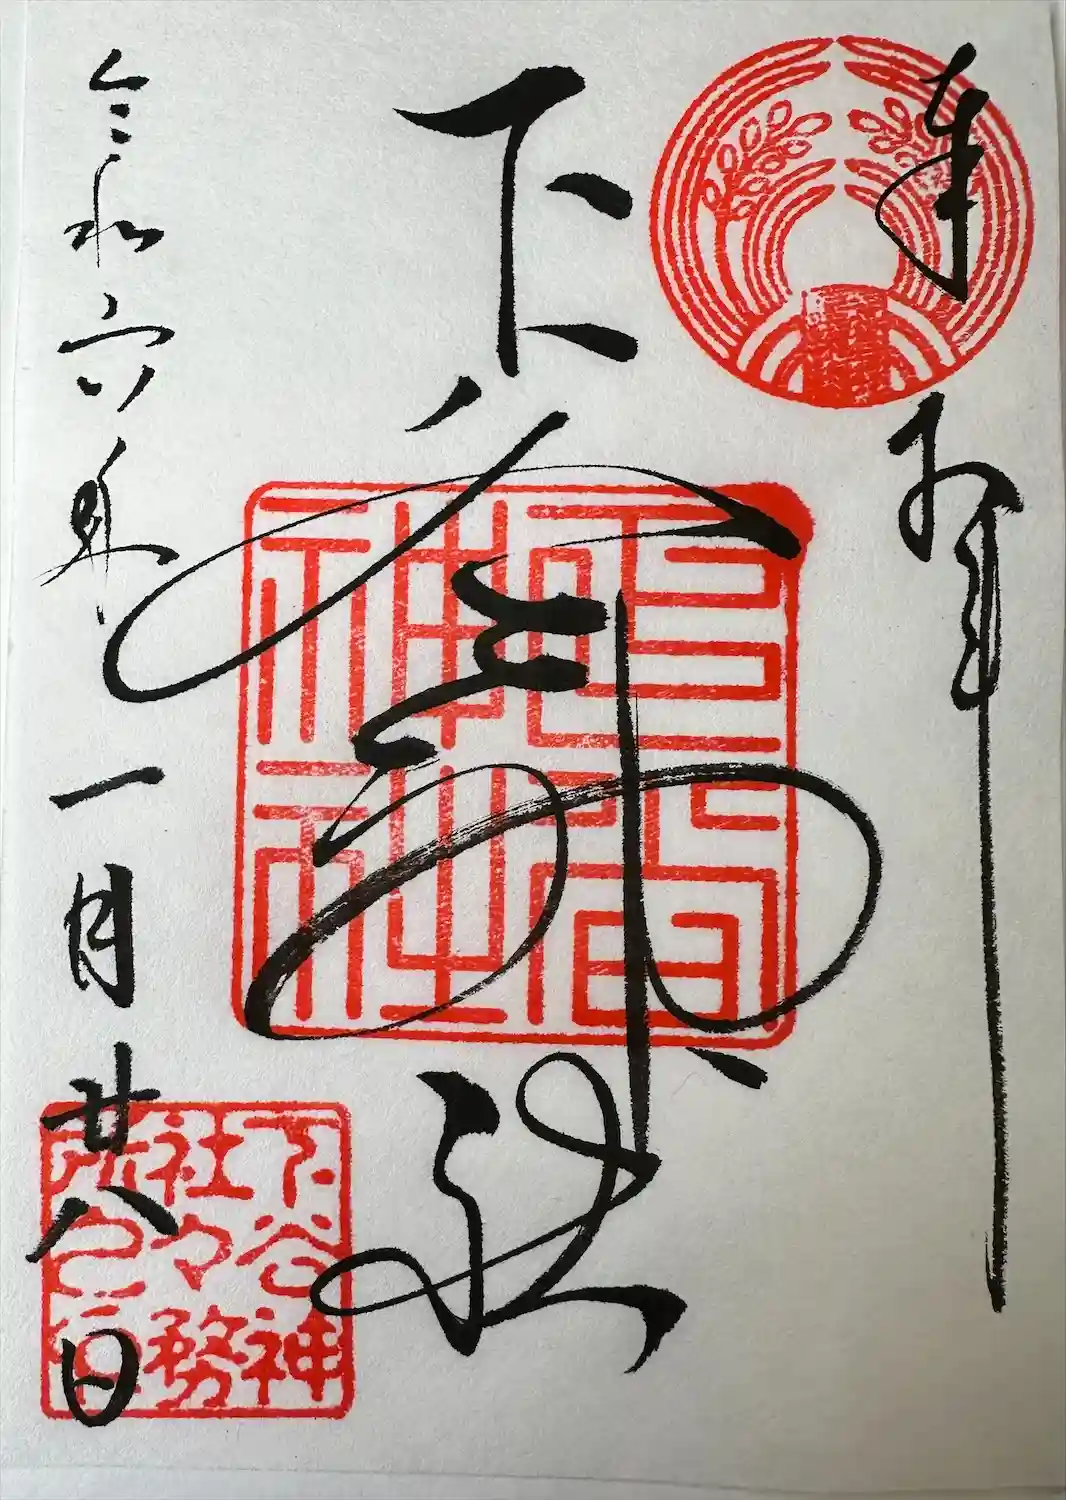 奉拝
下谷神社
下谷神社
令和六年一月廿八日
下谷神社々務所之印